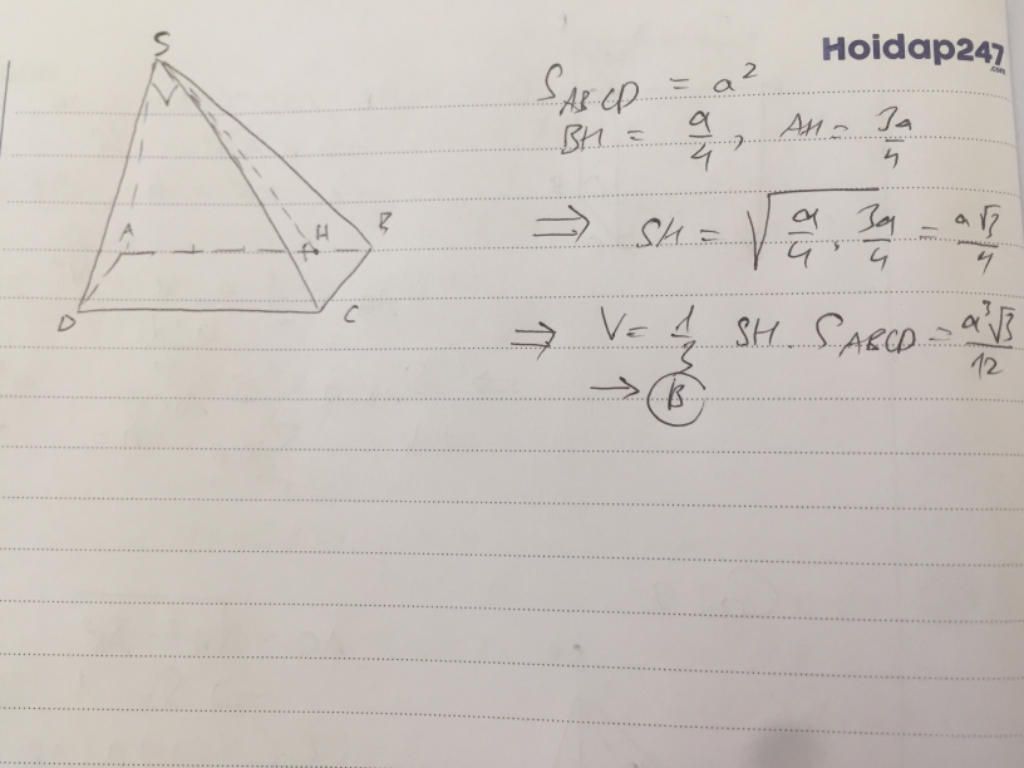 Hoidap247
.com
S
A
H
B
D
C
S_ABCD = a²
BH = a/4, AH = 3a/4
⇒ SH = √(a/4 . 3a/4) = a√3/4
⇒ V = 1/3 SH . S_ABCD = a³√3/12
→ B